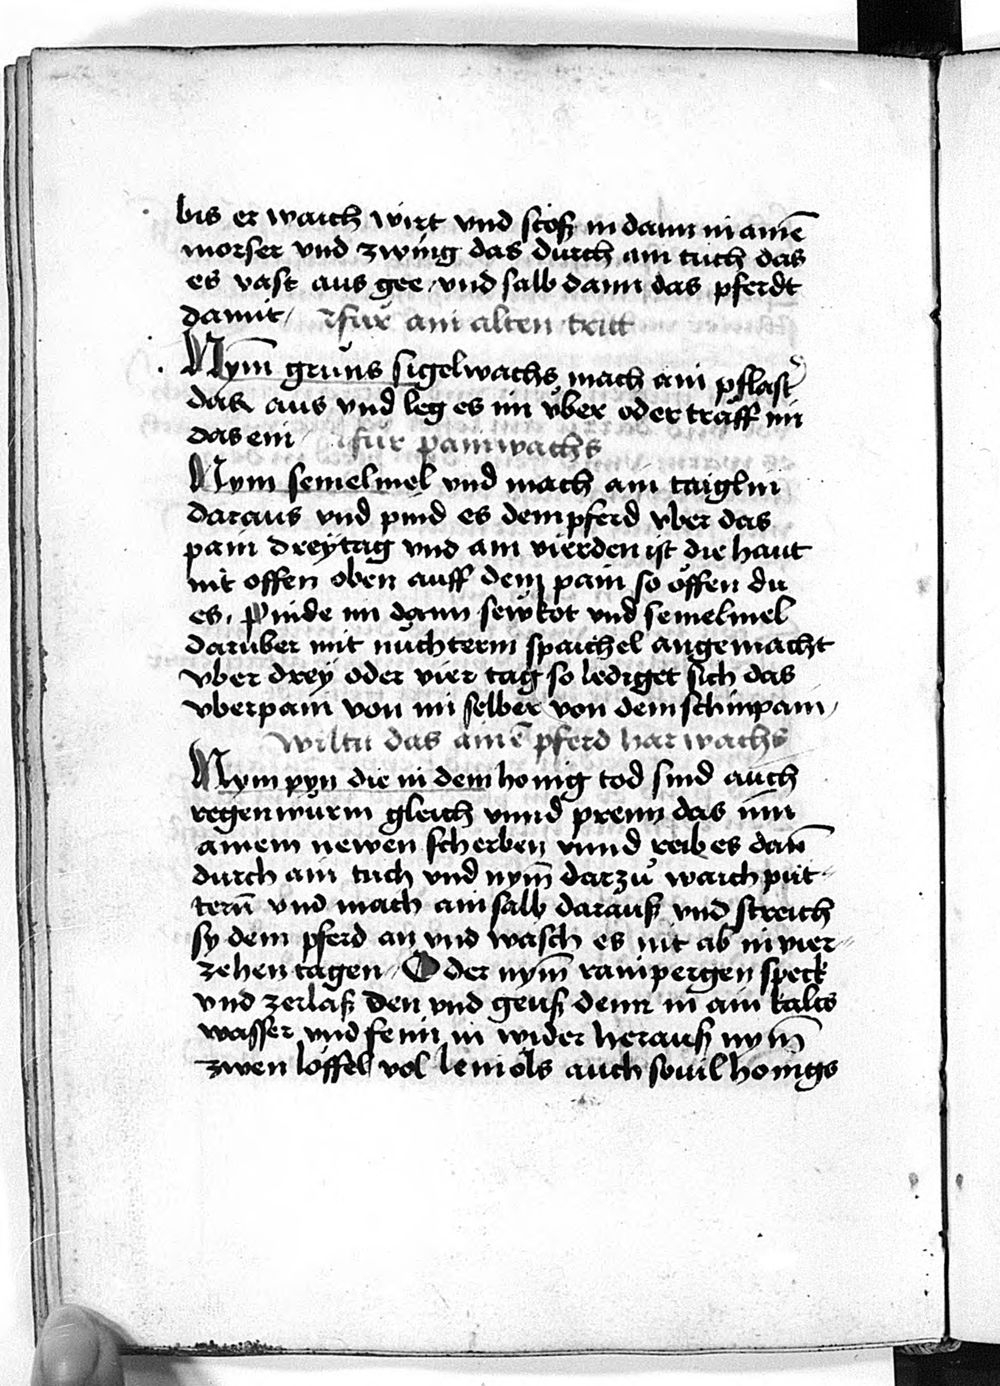 bis er waich wirt vnd stoß in dann in ainē
morser vnd zwing das durch ain tuch das
es vast aus gee vnd salb dann das pferdt
damit / für ain alten tritt
Nym̄ gruns sigelwachs mach ain pflast
das aus vnd leg es im v̊ber oder traff im
das ein für painwachs
Nym semelmel vnd mach ain taiglin
daraus vnd pind es dem pferd vber das
pain drey tag vnd am vierden ist die haut
nit offen oben auff dem pain so öffen du
es, Pinde im dann sewkot vnd semelmel
daruber mit nüchterm spaichel angemacht
vber drey oder vier tag so lediget sich das
vberpain von im selber von dem schinpain /
wiltu das ainē pferd har wachs
Nym pyn die in dem honig tod sind auch
regenwurm gleich vnnd prenn das inn
ainem newen scherben vnnd reib es dan̄
durch ain tuch vnd nym̄ darzů waich put-
tern̄ vnd mach ain salb darauß vnd streich
sy dem pferd an vnd wasch es nit ab in vier-
zehen tagen / Oder nym̄ rainpergen speck
vnd zerlaß den vnd geuß denn in ain kalts
wasser vnd fein in wider herauß nym̄
zwen löffel vol leinöls auch souil honigs